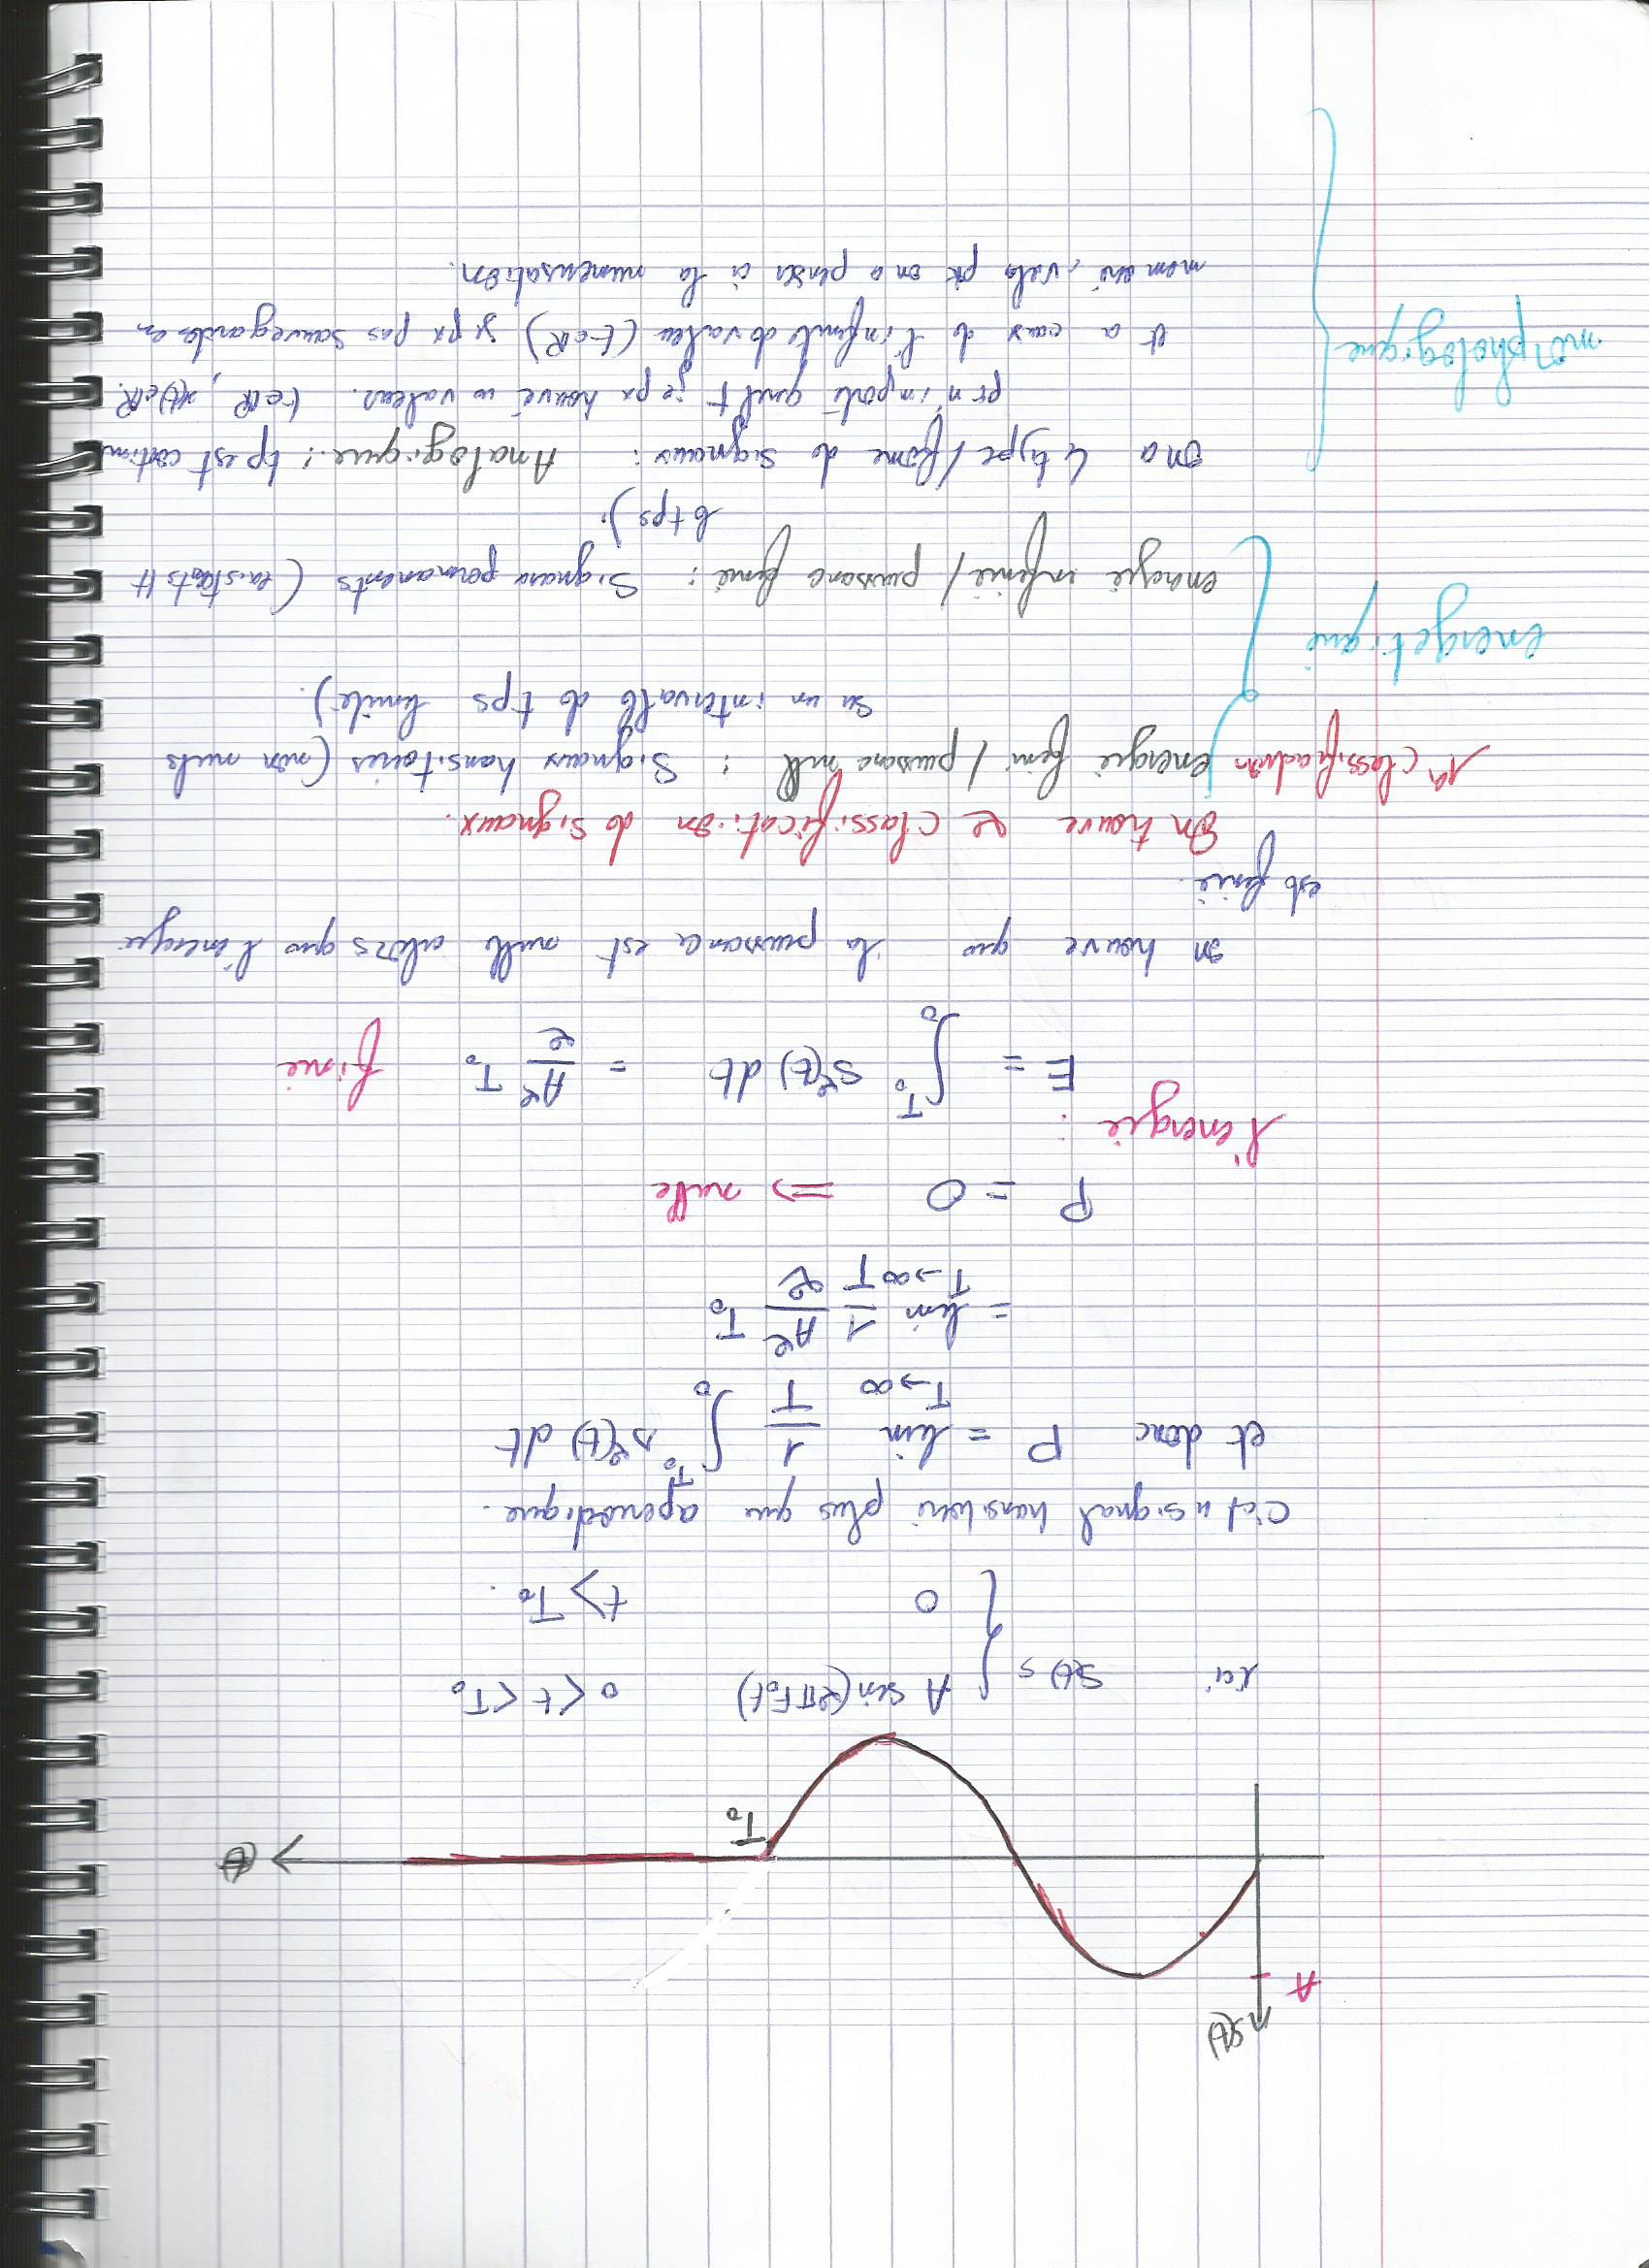 S(t)
A
T₀
(t)
ici S(t) = { A sin(2πF₀t) 0 < t < T₀
0 t > T₀.
C'est u signal transitoire plus que aperiodique.
et donc P = lim T→∞ 1/T ∫₀^T₀ s²(t) dt
= lim T→∞ 1/T A²/2 T₀
P = 0 => nulle
l'energie :
E = ∫₀^T₀ S²(t) dt = A²/2 T₀ finie
on trouve que la puissance est nulle alors que l'energie
est finie.
On trouve 2 classification de signaux.
1er classification energie fini / puissance nulle : Signaux transitoires (non nuls
su un intervalle de tps limité).
energetique
energie infinie / puissance finie : Signaux permanents (existants tt
le tps).
On a 4 type / forme de signaux : Analogique : tp est continu
pr n'importe quel t je px trouvé ∞ valeurs. t∈ℝ, x(t)∈ℝ.
morphologique
et a cause de l'infinité de valeu (t∈ℝ) je px pas sauvegarder en
memoire, voila pk on a penser à la numerisation.